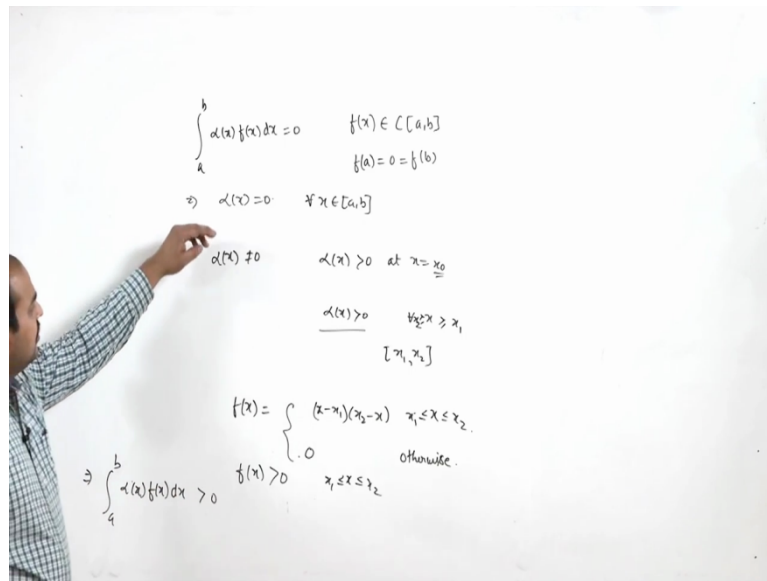 ∫_a^b α(x) f(x) dx = 0 f(x) ∈ C[a,b]
f(a) = 0 = f(b)
⇒ α(x) = 0 ∀ x ∈ [a,b]
α(x) ≠ 0 α(x) > 0 at x = x₀
α(x) > 0 x₂ ≥ x ≥ x₁
[x₁, x₂]
f(x) = { (x-x₁)(x₂-x) x₁ ≤ x ≤ x₂.
0 otherwise.
f(x) > 0 x₁ ≤ x ≤ x₂
⇒ ∫_a^b α(x) f(x) dx > 0